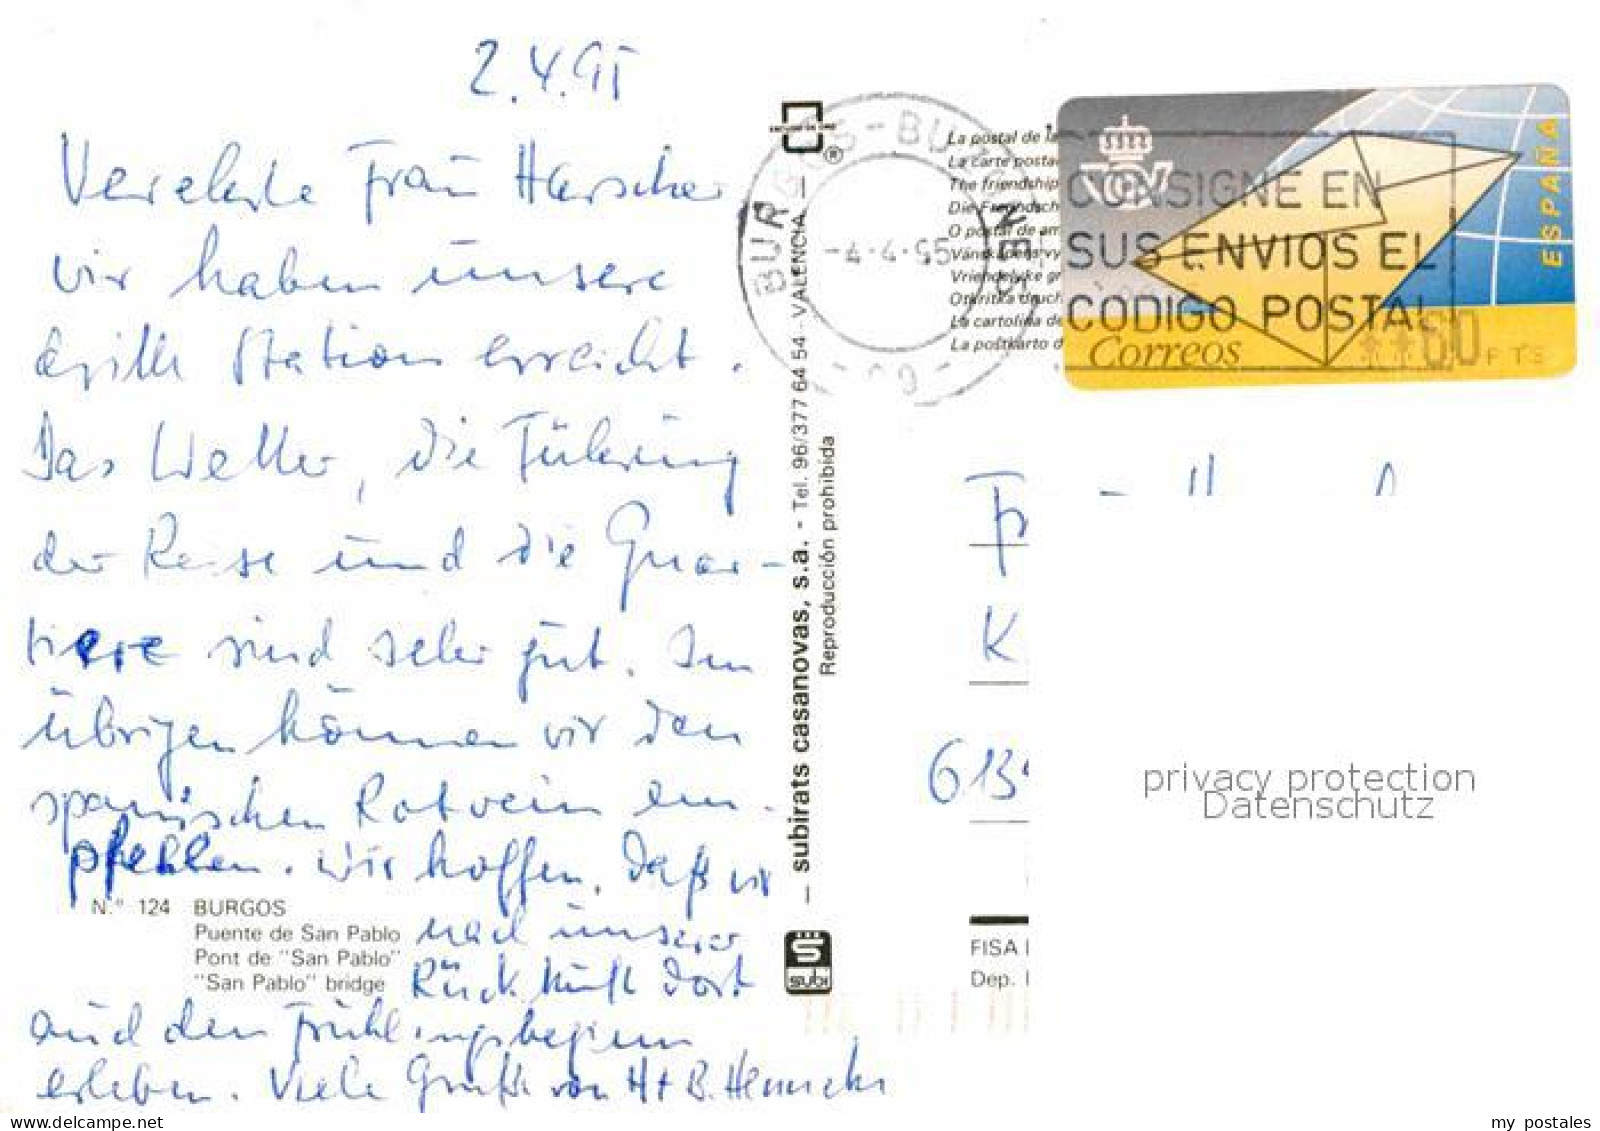 2.4.95
Verehrte Frau Harscher
wir haben unsere
dritte Station erreicht.
Das Wetter, die Führung
der Reise und die Quar-
tiere sind sehr gut. Im
übrigen können wir den
spanischen Rotwein em-
pfehlen. Wir hoffen, daß wir
nach unserer
Rückkunft dort
auch den Frühlingsbeginn
erleben. Viele Grüße von H + B.
N.º 124 BURGOS
Puente de San Pablo
Pont de "San Pablo"
"San Pablo" bridge
— subirats casanovas, s.a. - Tel. 96/377 64 54 - VALENCIA —
Reproducción prohibida
subi
®
BURGOS-BU
-4-4-95
La postal de la
La carte posta
The friendship
Die Freundsch
O postal de am
Vänskapens vy
Vriendelijke gr
Otkritka druch
La cartolina de
La postkarto d
CONSIGNE EN
SUS ENVIOS EL
CODIGO POSTAL
Correos
ESPAÑA
**60 PTS
Fr
K
6134
FISA I
Dep. l
privacy protection
Datenschutz
my postales